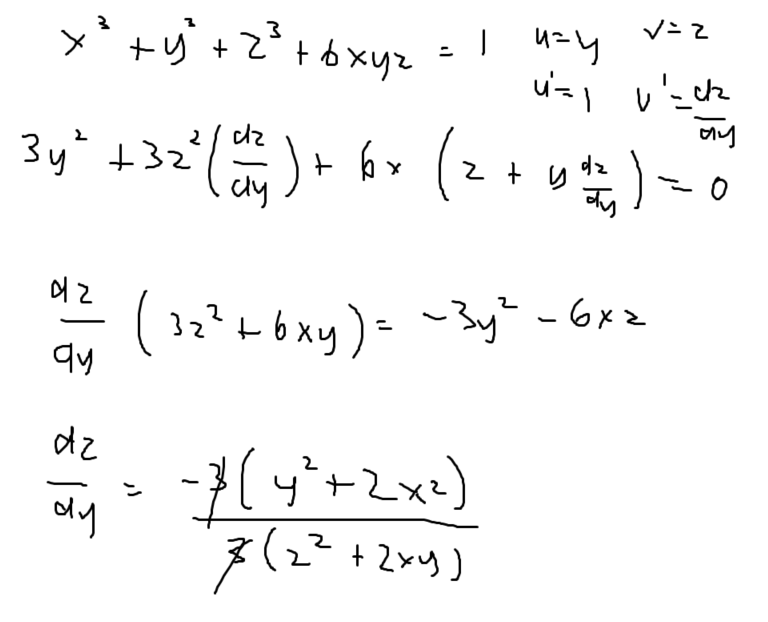 x³ + y³ + z³ + 6xyz = 1 u=y v=z
u'=1 v'=dz/dy
3y² + 3z² (dz/dy) + 6x (z + y dz/dy) = 0
dz/dy (3z² + 6xy) = -3y² - 6xz
dz/dy = -3(y² + 2xz) / 3(z² + 2xy)